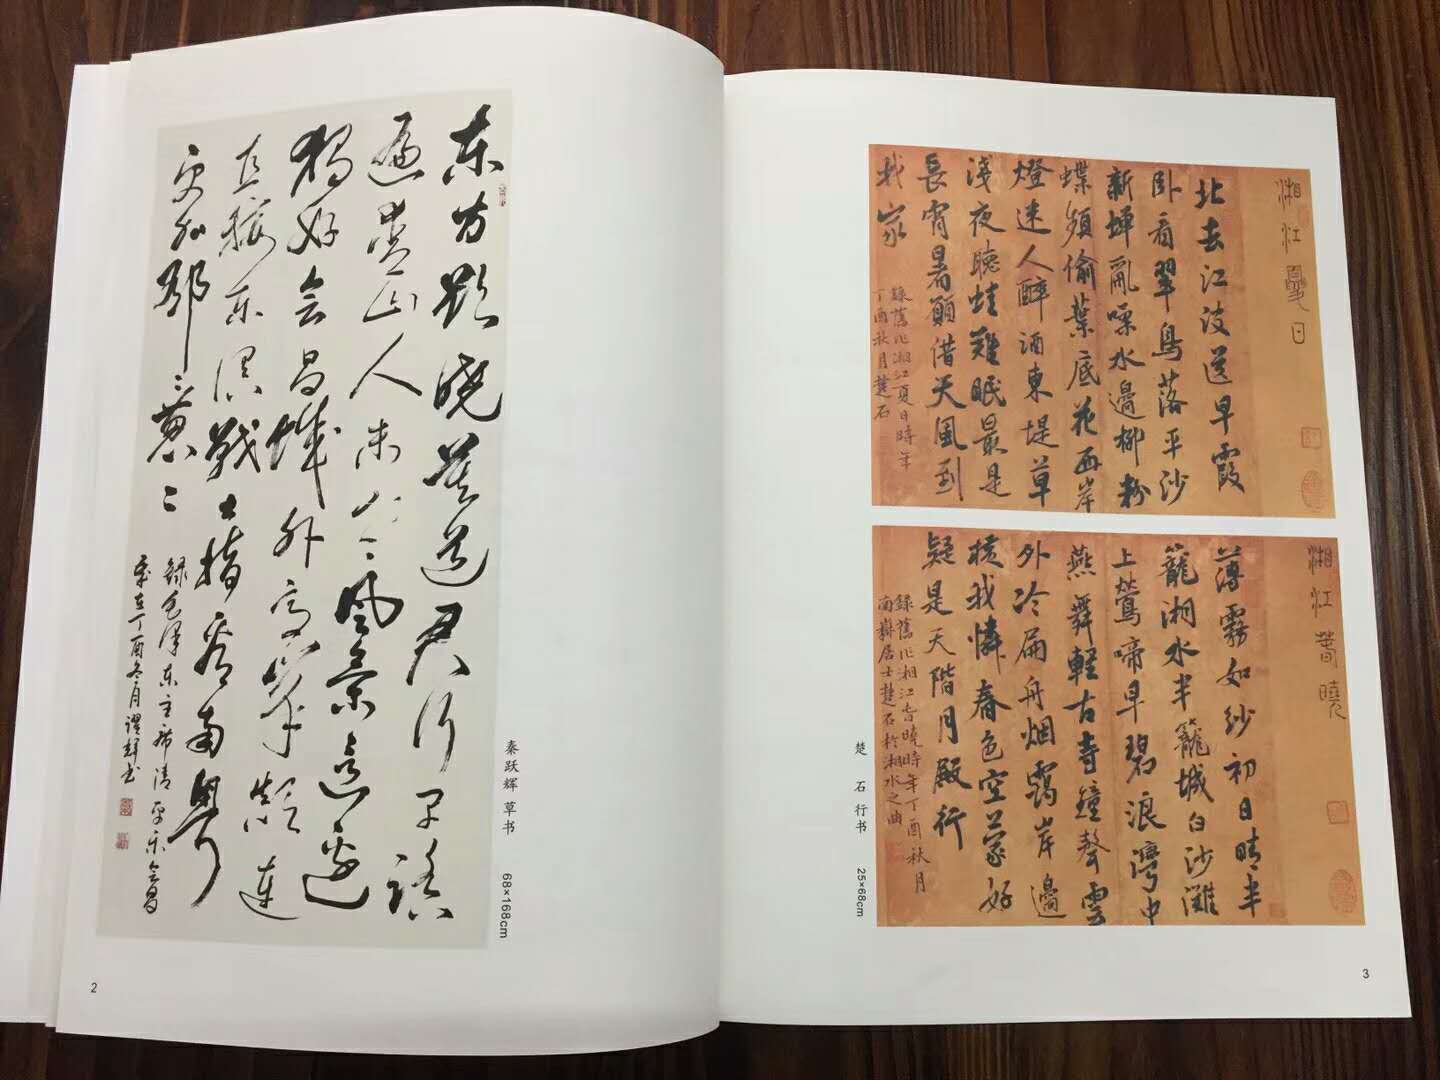 东方欲晓莫道君行早踏
遍青山人未老ミ风景这边
独好会昌城外高峰颠连
直接东溟战士指看南粤
更加郁ミ葱ミ
録毛泽东主席清平乐会昌
岁在丁酉冬月 辉书
秦跃辉 草书 68×168cm
2
湘江夏日
北去江波送早霞
卧看翠鳥落平沙
新蟬亂噪水邊柳粉
蝶頻偷葉底花西岸
燈迷人醉酒東堤草
淺夜聽蛙難眠最是
長宵暑願借天風到
我家
録舊作湘江夏日時年
丁酉秋月楚石
湘江春曉
薄霧如紗初日晴半
籠湘水半籠城白沙灘
上鶯啼早碧浪灣中
燕舞輕古寺鐘聲雲
外冷扁舟烟靄岸邊
横我憐春色空蒙好
疑是天階月殿行
録舊作湘江春曉時年丁酉秋月
南嶽居士楚石於湘水之曲
楚 石 行书 25×68cm
3